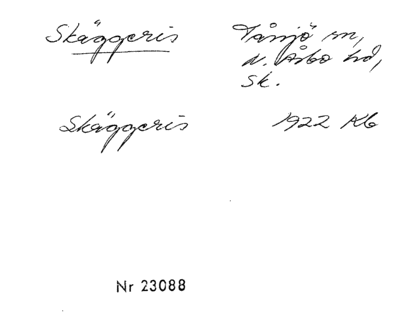 Skäggeris Tåssjö sn,
N. Åsbo hd,
Sk.
Skäggeris 1922 Kb
Nr 23088